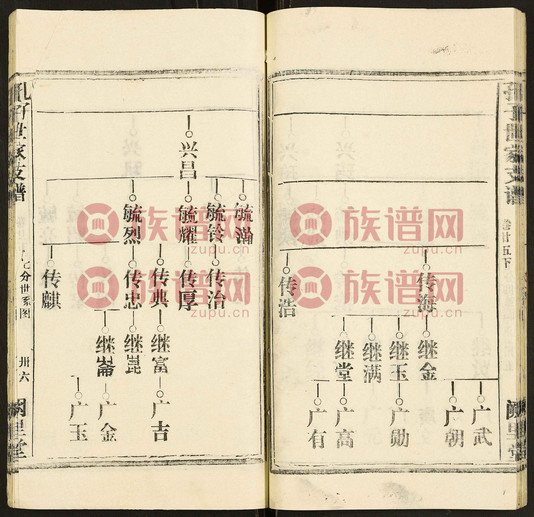 孔子世家支谱
卷廿五下
阙里堂
传海
传浩
继金
继玉
继满
继堂
广武
广朝
广勋
广高
广有
兴昌
毓瀚
毓铃
毓耀
毓烈
传治
传厚
传典
传忠
传麒
继富
继崑
继崙
广吉
广金
广玉
孔子世家支谱
分世系图
卅六
阙里堂
族谱网
zupu.cn
族谱网
zupu.cn
族谱网
zupu.cn
族谱网
zupu.cn